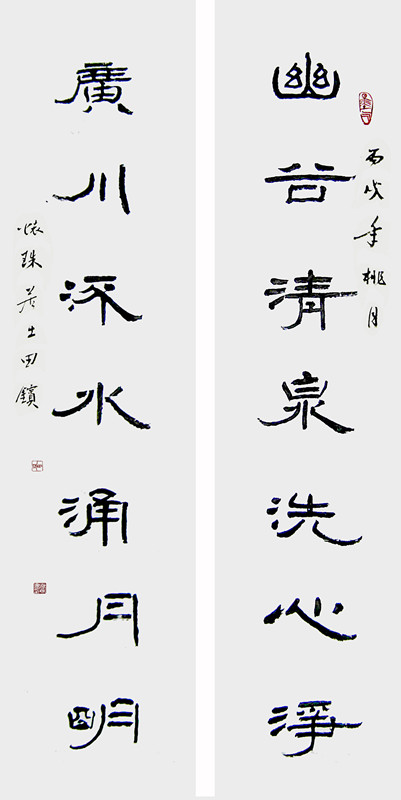 丙戌年桃月
幽谷清泉洗心淨
廣川深水涌月明
珠 士田